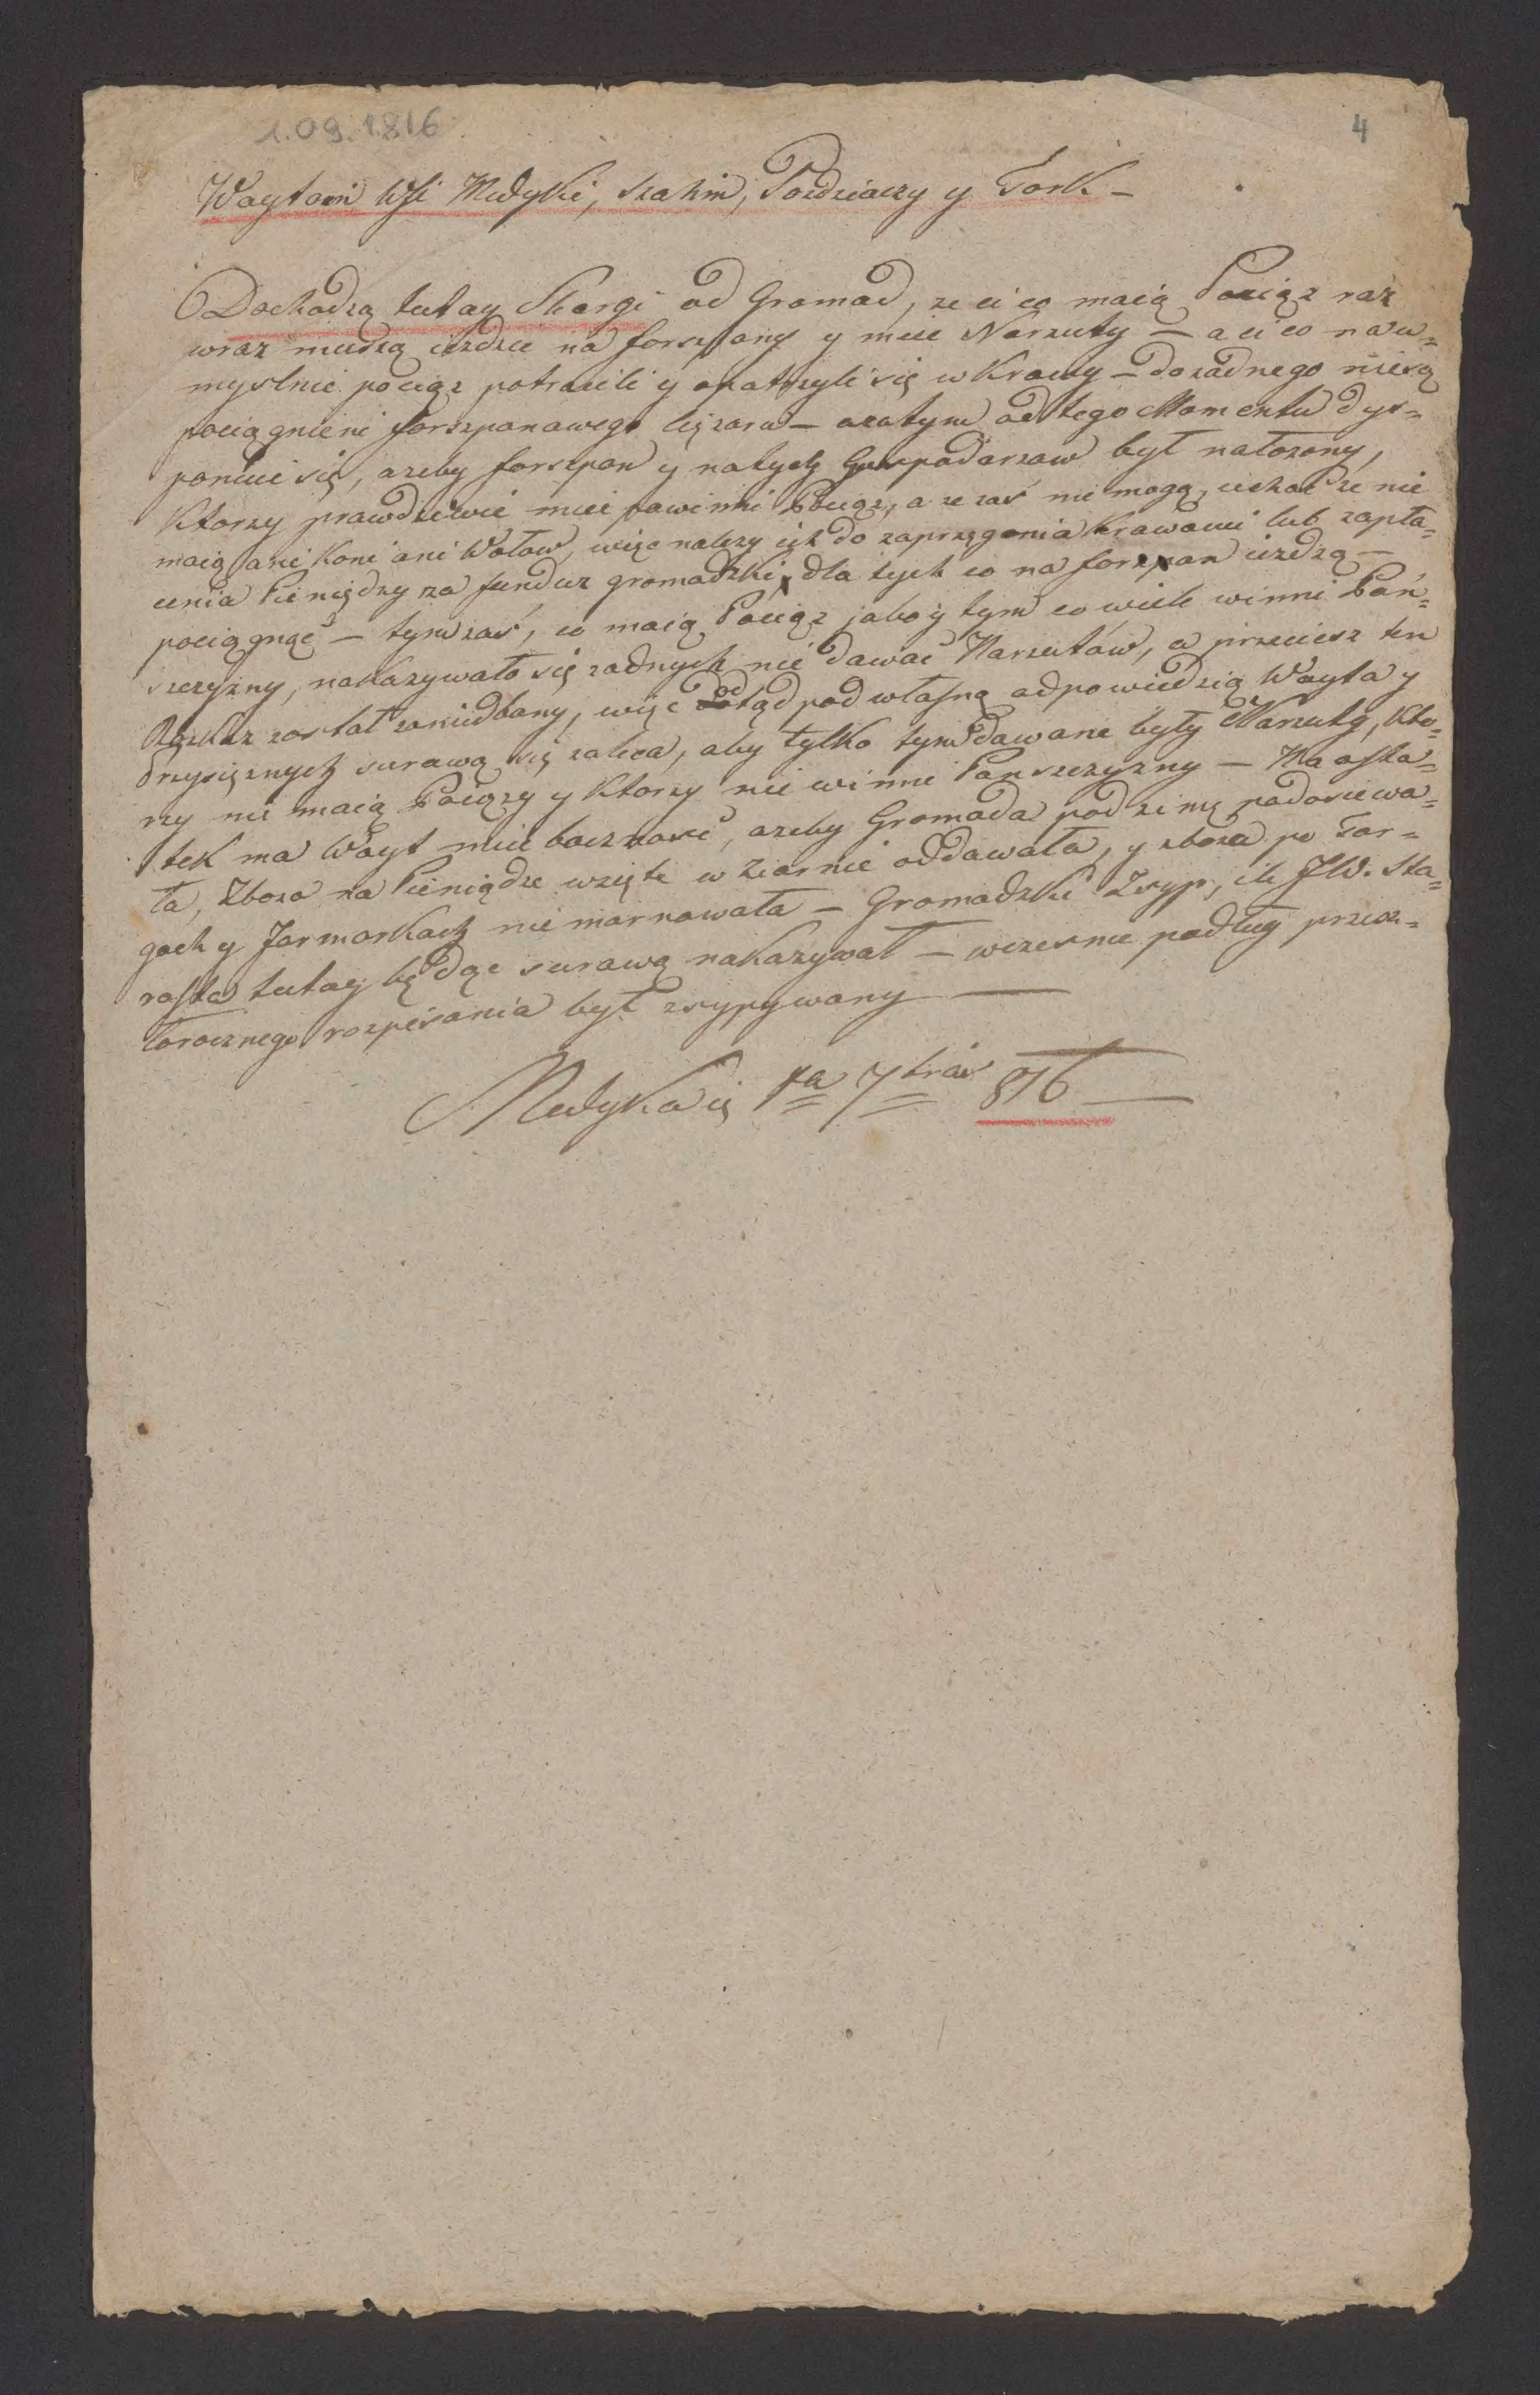 1.09.1816
4
Woytom Wsi Medyki, Szahin, Pozdziaczy y Tork –
Dochodzą tutay Skargi od Gromad, ze ci co maią Pociąg raz
wraz muszą ieździć na forszpany y mieć Narzuty – a ci co nau=
myslnie pociąg potracili y opatrzyli się w Krowy – do zadnego niesą
pociągnieni forszpanowego cięzaru – azatym od tego Momentu dys=
ponuie się, azeby forszpan y natych Gospodarzow był nałozony,
Ktorzy prawdziwie mieć powinni Pociąg, a ze zaś nie mogą, iechać ze nie
maią ani Koni ani Wołow, więc nalezy ich do zaprzęgania Krowami lub zapła=
cenia Pieniędzy za fundusz gromadzki, dla tych co na forszpan iezdzą –
pociągnąć – tym zaś, co maią Pociąg jako y tym co wiele winni Pań=
szczyzny, nakazywało się zadnych nie dawać Narzutów, a przeciesz ten
Rozkaz został zaniedbany, więc odtąd pod własną odpowiedzią Woyta y
Przysięznych surowo się zaleca, aby tylko tym dawane były Narzuty, Kto=
rzy nie maią Pociągu y Ktorzy nie winni Panszczyzny – Na osta=
tek ma Woyt mieć bacznosć, azeby Gromada pod zimę podosiewa=
ła, Zboza na Pieniądze wzięte w Ziarnie oddawała, y zboza po Tar=
gach y Jarmarkach nie marnowała – Gromadzki Zsyp, ile JW. Sta=
rosta tutay będąc surowo nakazywał – wczesnie podług przesz=
łorocznego rozpisania był zsypywany —
Medyka 1a 7bra 816 —